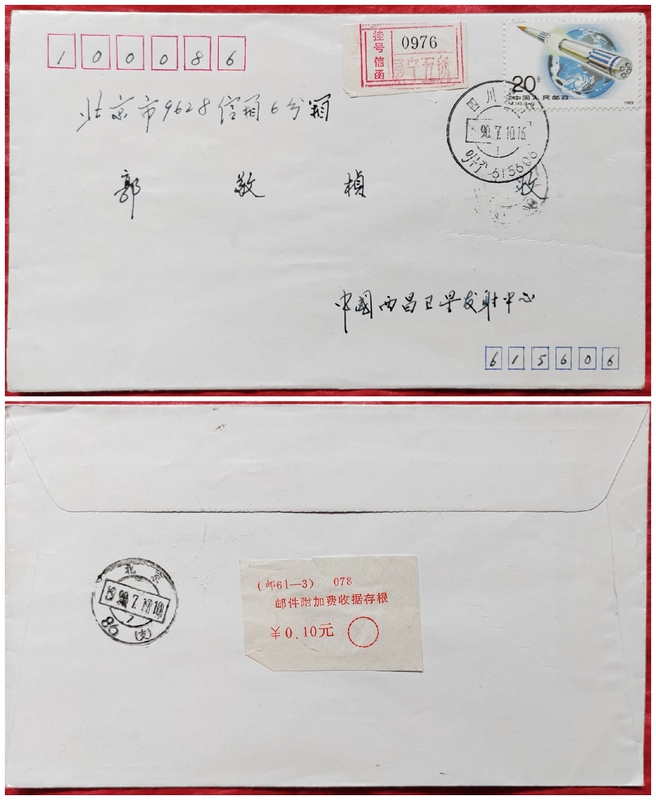 100086
挂号信函
0976
20分
中国人民邮政
1989
四川
90.7.10.16
615606
北京市9628信箱6分箱
郭敬楨 收
中国西昌卫星发射中心
615606
北京
90.7.17.10
86(支)
(邮61—3) 078
邮件附加费收据存根
¥0.10元